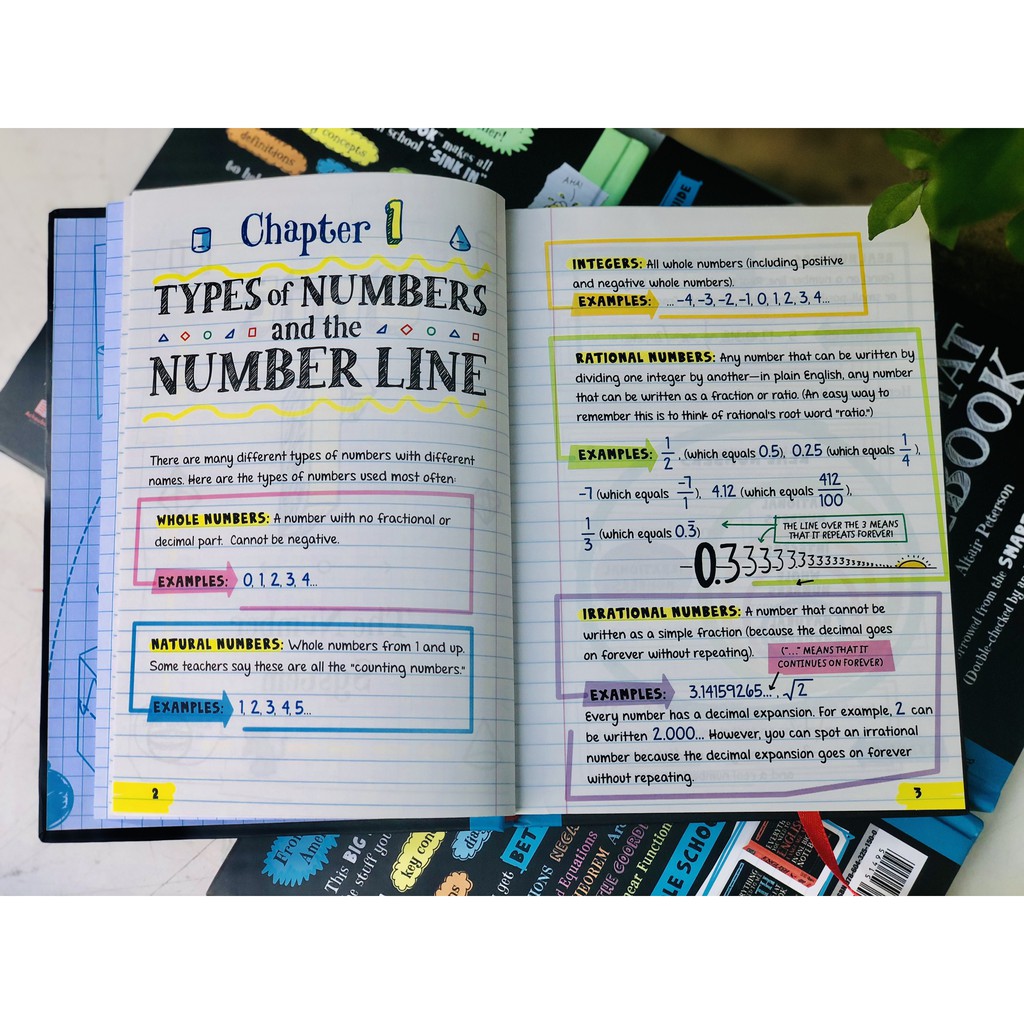 definitions
concepts
school "SINK IN"
makes all
Chapter 1
TYPES of NUMBERS
and the
NUMBER LINE
There are many different types of numbers with different
names. Here are the types of numbers used most often:
WHOLE NUMBERS: A number with no fractional or
decimal part. Cannot be negative.
EXAMPLES: 0, 1, 2, 3, 4...
NATURAL NUMBERS: Whole numbers from 1 and up.
Some teachers say these are all the "counting numbers."
EXAMPLES: 1, 2, 3, 4, 5...
2
INTEGERS: All whole numbers (including positive
and negative whole numbers).
EXAMPLES: ... -4, -3, -2, -1, 0, 1, 2, 3, 4...
RATIONAL NUMBERS: Any number that can be written by
dividing one integer by another—in plain English, any number
that can be written as a fraction or ratio. (An easy way to
remember this is to think of rational's root word "ratio.")
EXAMPLES: 1/2, (which equals 0.5), 0.25 (which equals 1/4),
-7 (which equals -7/1), 4.12 (which equals 412/100),
1/3 (which equals 0.3̅)
THE LINE OVER THE 3 MEANS
THAT IT REPEATS FOREVER!
0.333333333333333333333
IRRATIONAL NUMBERS: A number that cannot be
written as a simple fraction (because the decimal goes
on forever without repeating).
("..." MEANS THAT IT
CONTINUES ON FOREVER)
EXAMPLES: 3.14159265..., √2
Every number has a decimal expansion. For example, 2 can
be written 2.000... However, you can spot an irrational
number because the decimal expansion goes on forever
without repeating.
3
Altair Peterson
from the SMAR
(Double-checked by
This BIG
key con
get BET
Equations